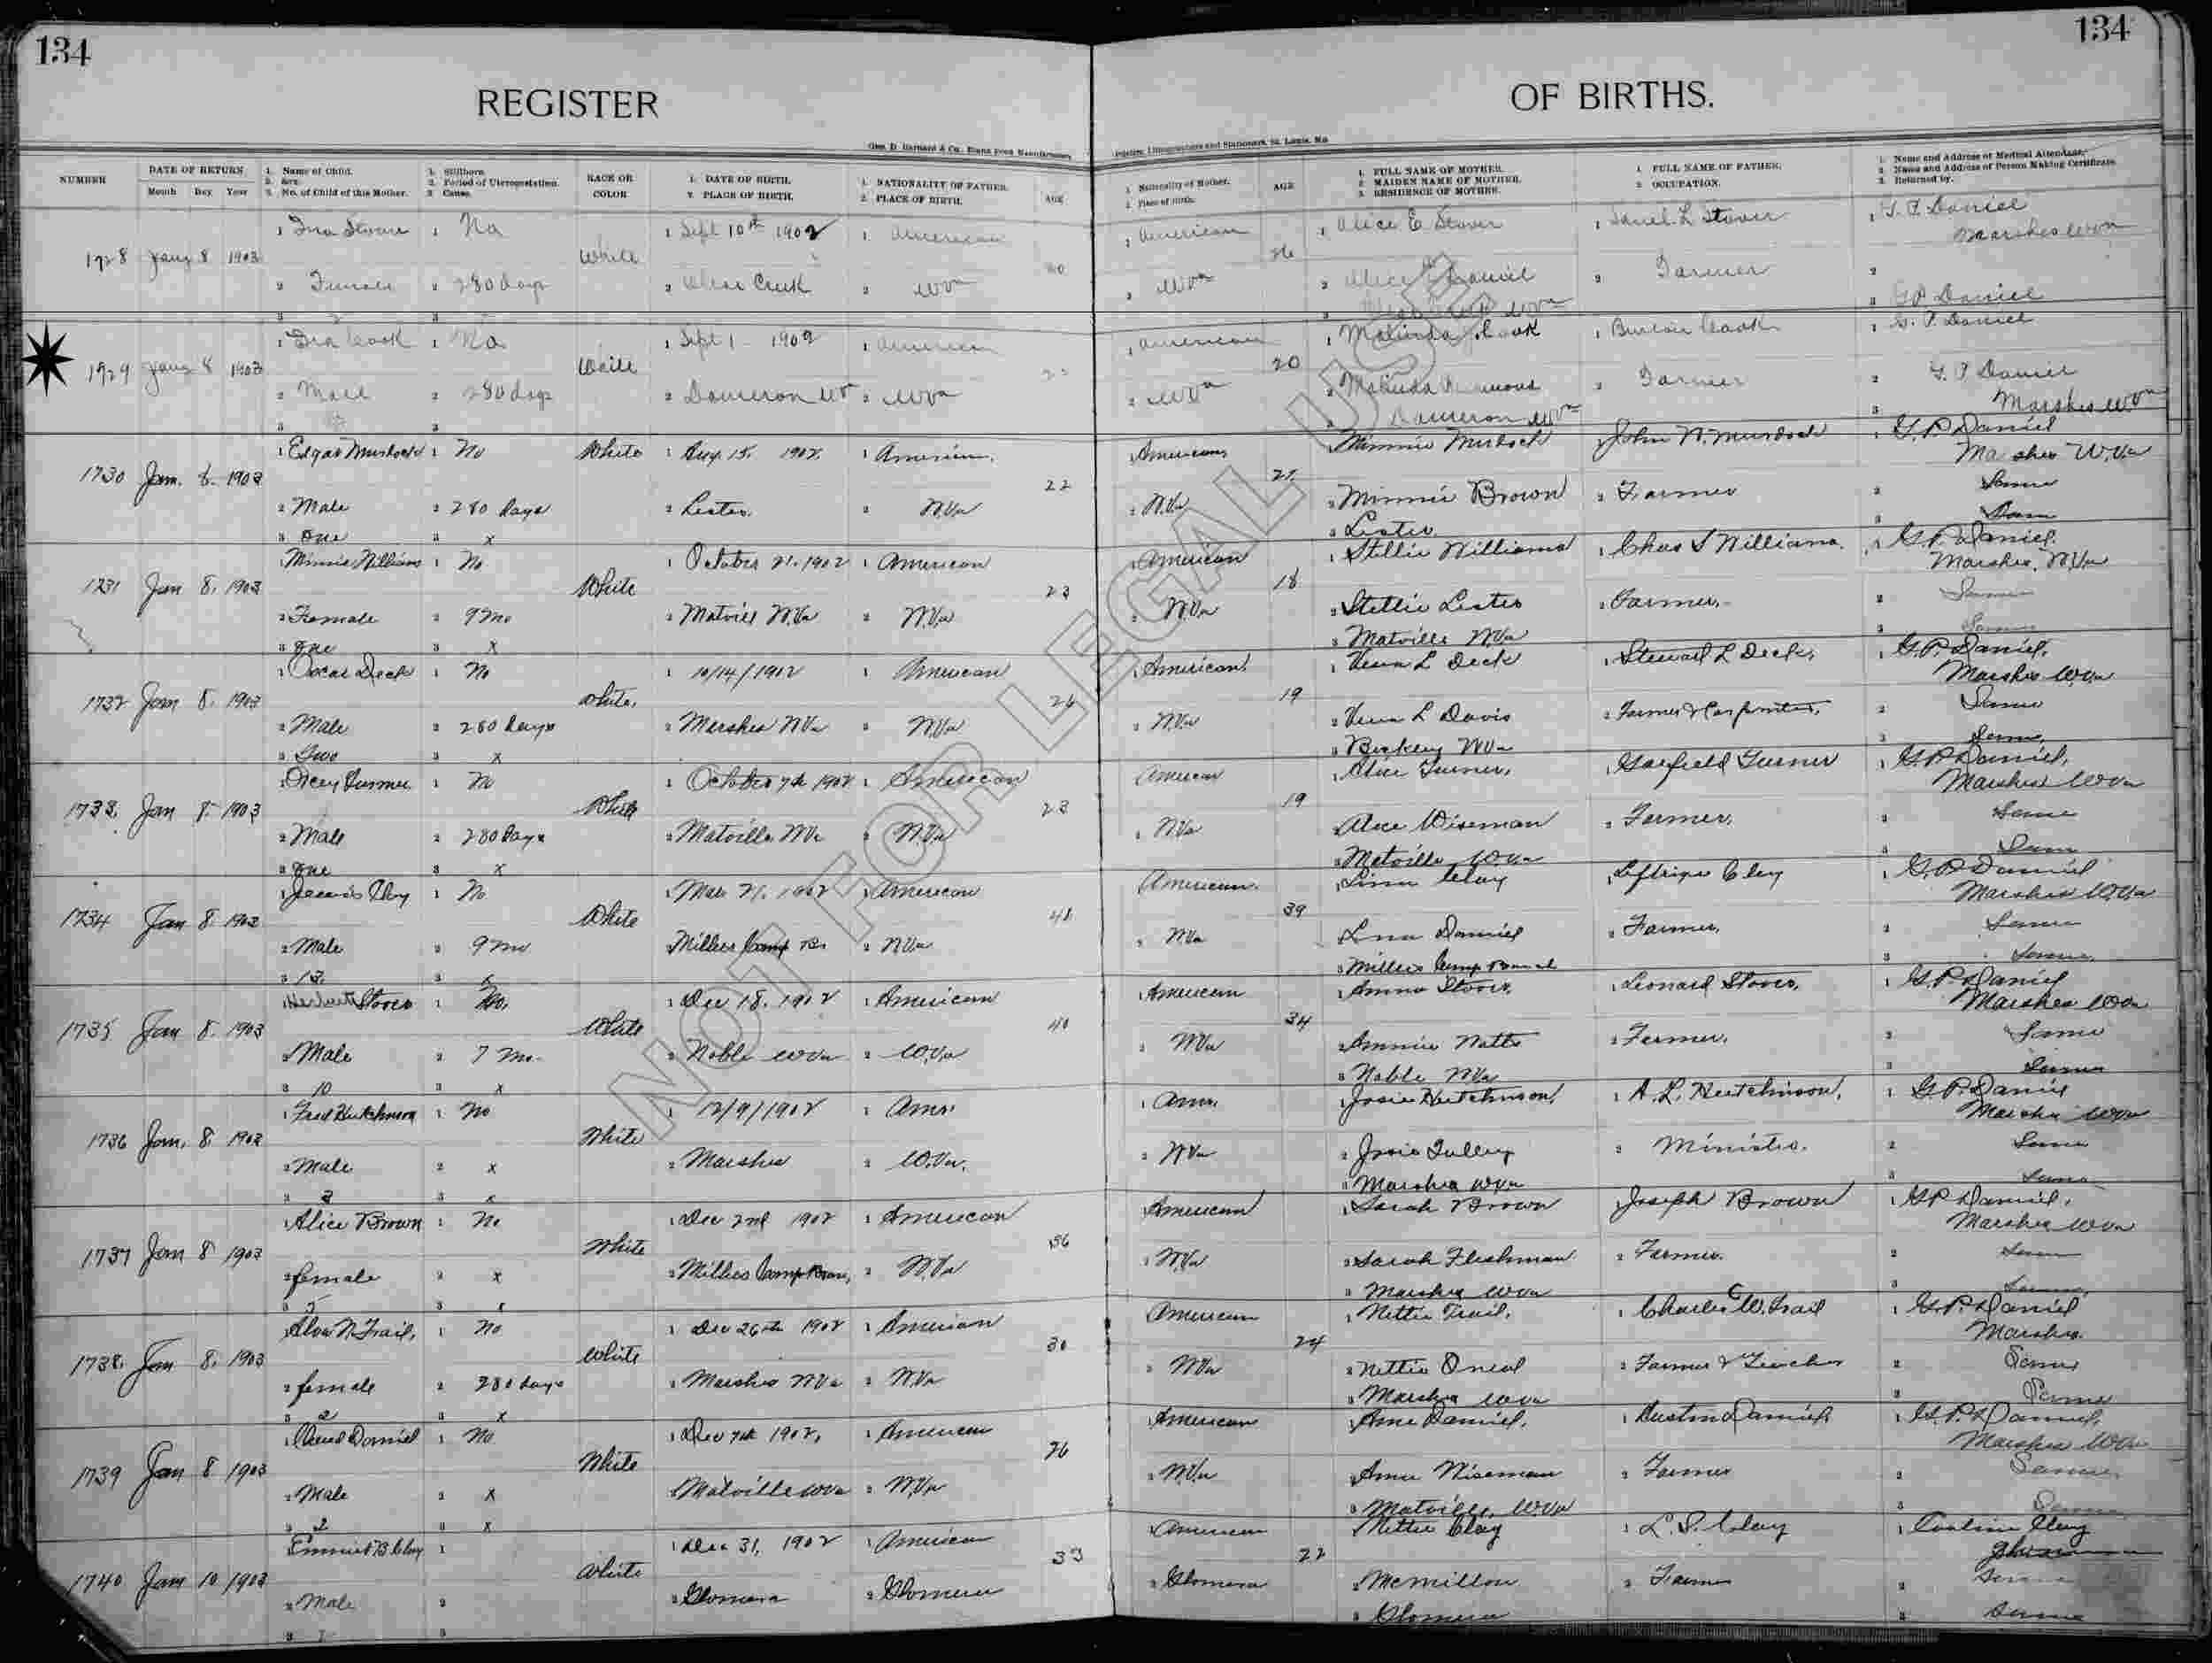 134
134
REGISTER
OF BIRTHS.
NUMBER
DATE OF RETURN
Month Day Year
1. Name of Child.
2. Sex.
3. No. of Child of this Mother.
1. Stillborn.
2. Period of Uterogestation.
3. Cause.
RACE OR
COLOR
1. DATE OF BIRTH.
2. PLACE OF BIRTH.
1. NATIONALITY OF FATHER.
2. PLACE OF BIRTH.
AGE
1. Nationality of Mother.
2. Place of Birth.
AGE
1. FULL NAME OF MOTHER.
2. MAIDEN NAME OF MOTHER.
3. RESIDENCE OF MOTHER.
1. FULL NAME OF FATHER.
2. OCCUPATION.
1. Name and Address of Medical Attendant.
2. Name and Address of Person Making Certificate.
3. Returned by.
1 No 1 Sept 10th 1902 1 American 1 American 1 Alice E Stover 1 G. P. Daniel
1728 8 1903 White 26 Marshes WVa
2 Female 2 280 days 2 Creek 2 WVa 2 WVa 2 Alice Daniel 2 Farmer 2
3 G.P. Daniel
1 Cook 1 No 1 Sept 1 1902 1 American 1 American 1 Malinda Cook 1 Cook 1 G. P. Daniel
1729 8 1903 White 20
2 Male 2 280 days 2 Dameron 2 WVa 2 WVa 2 Malinda 2 Farmer 2 G. P. Daniel
3 Dameron WVa 3 Marshes WVa
1 Edgar Murdock 1 No White 1 Aug. 15. 1902. 1 American. American Minnie Murdock John N. Murdock 1 G. P. Daniel
1730 Jan. 8. 1903 22 21 Marshes W.Va
2 Male 2 280 days 2 Lester. 2 W.Va 2 W.Va 2 Minnie Brown 2 Farmer 2 Same
3 One 3 x 3 Lester 3 Same
Minnie Williams 1 No 1 October 21. 1902 1 American American 1 Stellie Williams 1 Chas S Williams. 1 G. P. Daniel.
1731 Jan 8. 1903 White 23 18 Marshes, W.Va
2 Female 2 9 mo 2 Matvill W.Va 2 W.Va 2 W.Va 2 Stellie Lester 2 Farmer. 2 Same
3 One 3 x 3 Matville W.Va 3 Same
1 Oscar Deck 1 No 1 10/14/1902 1 American American. 1 L Deck 1 Steward L Deck. 1 G. P. Daniel.
1732 Jan 8. 1903 White. 26 19 Marshes W.Va
2 Male 2 280 days 2 Marshes W.Va 2 W.Va 2 W.Va 2 L Davis 2 Farmer & Carpenter. 2 Same
3 Two 3 x 3 WVa 3 Same.
Turner 1 No 1 October 7th 1902 1 American American 1 Alice Turner. Garfield Turner 1 G. P. Daniel.
1733. Jan 8. 1903 White 23 19 Marshes W.Va
2 Male 2 280 days 2 Matville W.Va 2 W.Va 2 W.Va Alice Wiseman 2 Farmer. 2 Same
3 One 3 x 3 Matville W.Va 3 Same
Clay 1 No 1 Mar 21. 1902 1 American American. 1 Clay Clay 1 G. P. Daniel
1734 Jan 8. 1903 White 41 39 Marshes W.Va
2 Male 2 9 mo Millers Camp Br. 2 W.Va 2 W.Va Daniel 2 Farmer. 2 Same
3 13. 3 3 Millers Camp Branch 3 Same.
Stover 1 No. 1 Dec 18. 1902 1 American American 1 Stover. 1 Leonard Stover. 1 G. P. Daniel
1735 Jan 8. 1903 White 40 34 Marshes W.Va
2 Male 2 7 Mo. 2 Noble W.Va 2 W.Va 2 W.Va 2 Farmer. 2 Same
3 10 3 x 3 Noble W.Va 3 Same
1 Fred Hutchinson 1 No 1 12/9/1902 1 Amer. 1 Amer. 1 Josie Hutchinson. 1 A. L. Hutchinson. 1 G. P. Daniel
1736 Jan. 8. 1903 White Marshes W.Va
2 Male 2 x 2 Marshes 2 W.Va. 2 W.Va 2 Josie 2 Minister. 2 Same
3 3 3 x 3 Marshes W.Va 3 Same
1 Alice Brown 1 No 1 Dec 2nd 1902 1 American American 1 Sarah Brown Joseph Brown 1 G. P. Daniel.
1737 Jan 8 1903 White 36 Marshes W.Va
2 female 2 x 2 Millers Camp Bran. 2 W.Va 2 W.Va 2 Sarah Fleshman 2 Farmer. 2 Same
3 5 3 x 3 Marshes W.Va 3 Same.
Trail. 1 No 1 Dec 26th 1902 1 American American 1 Nettie Trail. 1 Charles W. Trail 1 G. P. Daniel
1738. Jan 8. 1903 White 30 24 Marshes.
2 female 2 280 days 2 Marshes W.Va 2 W.Va 2 W.Va 2 Nettie Oneal 2 Farmer & Teacher 2 Same
3 2 3 x 3 Marshes W.Va 3 Same
Daniel 1 No 1 Dec 7th 1902. 1 American American Daniel. 1 Austin Daniel. 1 G. P. Daniel.
1739 Jan 8 1903 White 26 Marshes W.Va
2 Male 2 x Matville W.Va 2 W.Va 2 W.Va Wiseman 2 Farmer 2 Same
3 2 3 x 3 Matville. W.Va 3 Same
Emmert B. Clay 1 1 Dec 31. 1902 1 American 1 American Nettie Clay 1 L. S. Clay 1 Clay
1740 Jan 10 1903 White 33 22
2 Male 2 2 Glomera 2 Glomera 2 Glomera 2 McMillon 2 Farmer 2 Same
3 3 3 Glomera 3 Same
NOT FOR LEGAL USE